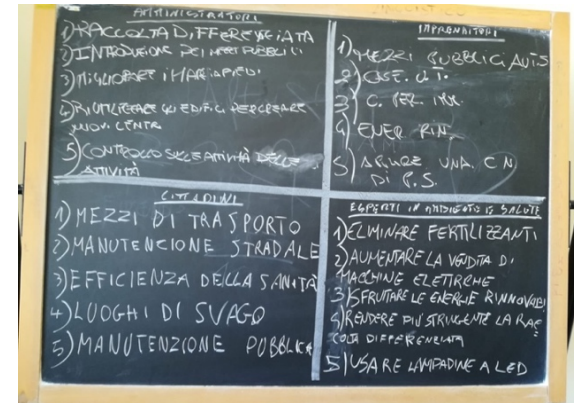 AMMINISTRATORI
1) RACCOLTA DIFFERENZIATA
2) INTRODUZIONE DEI MEZZI PUBBLICI
3) MIGLIORARE I MARCIAPIEDI
4) RIUTILIZZARE GLI EDIFICI PER CREARE
NUOVI CENTRI
5) CONTROLLO SULLE ATTIVITÀ DELLE
ATTIVITÀ
IMPRENDITORI
1) MEZZI PUBBLICI AUT.
2)
3) C. PER
4) ENER RIN
5) UNA C N
DI P.S.
CITTADINI
1) MEZZI DI TRASPORTO
2) MANUTENCIONE STRADALE
3) EFFICIENZA DELLA SANITÀ
4) LUOGHI DI SVAGO
5) MANUTENZIONE PUBBLICA
ESPERTI IN AMBIENTE E SALUTE
1) ELIMINARE FERTILIZZANTI
2) AUMENTARE LA VENDITA DI
MACCHINE ELETTRICHE
3) SFRUTTARE LE ENERGIE RINNOVABILI
4) RENDERE PIÙ STRINGENTE LA RAC
COLTA DIFFERENZIATA
5) USARE LAMPADINE A LED